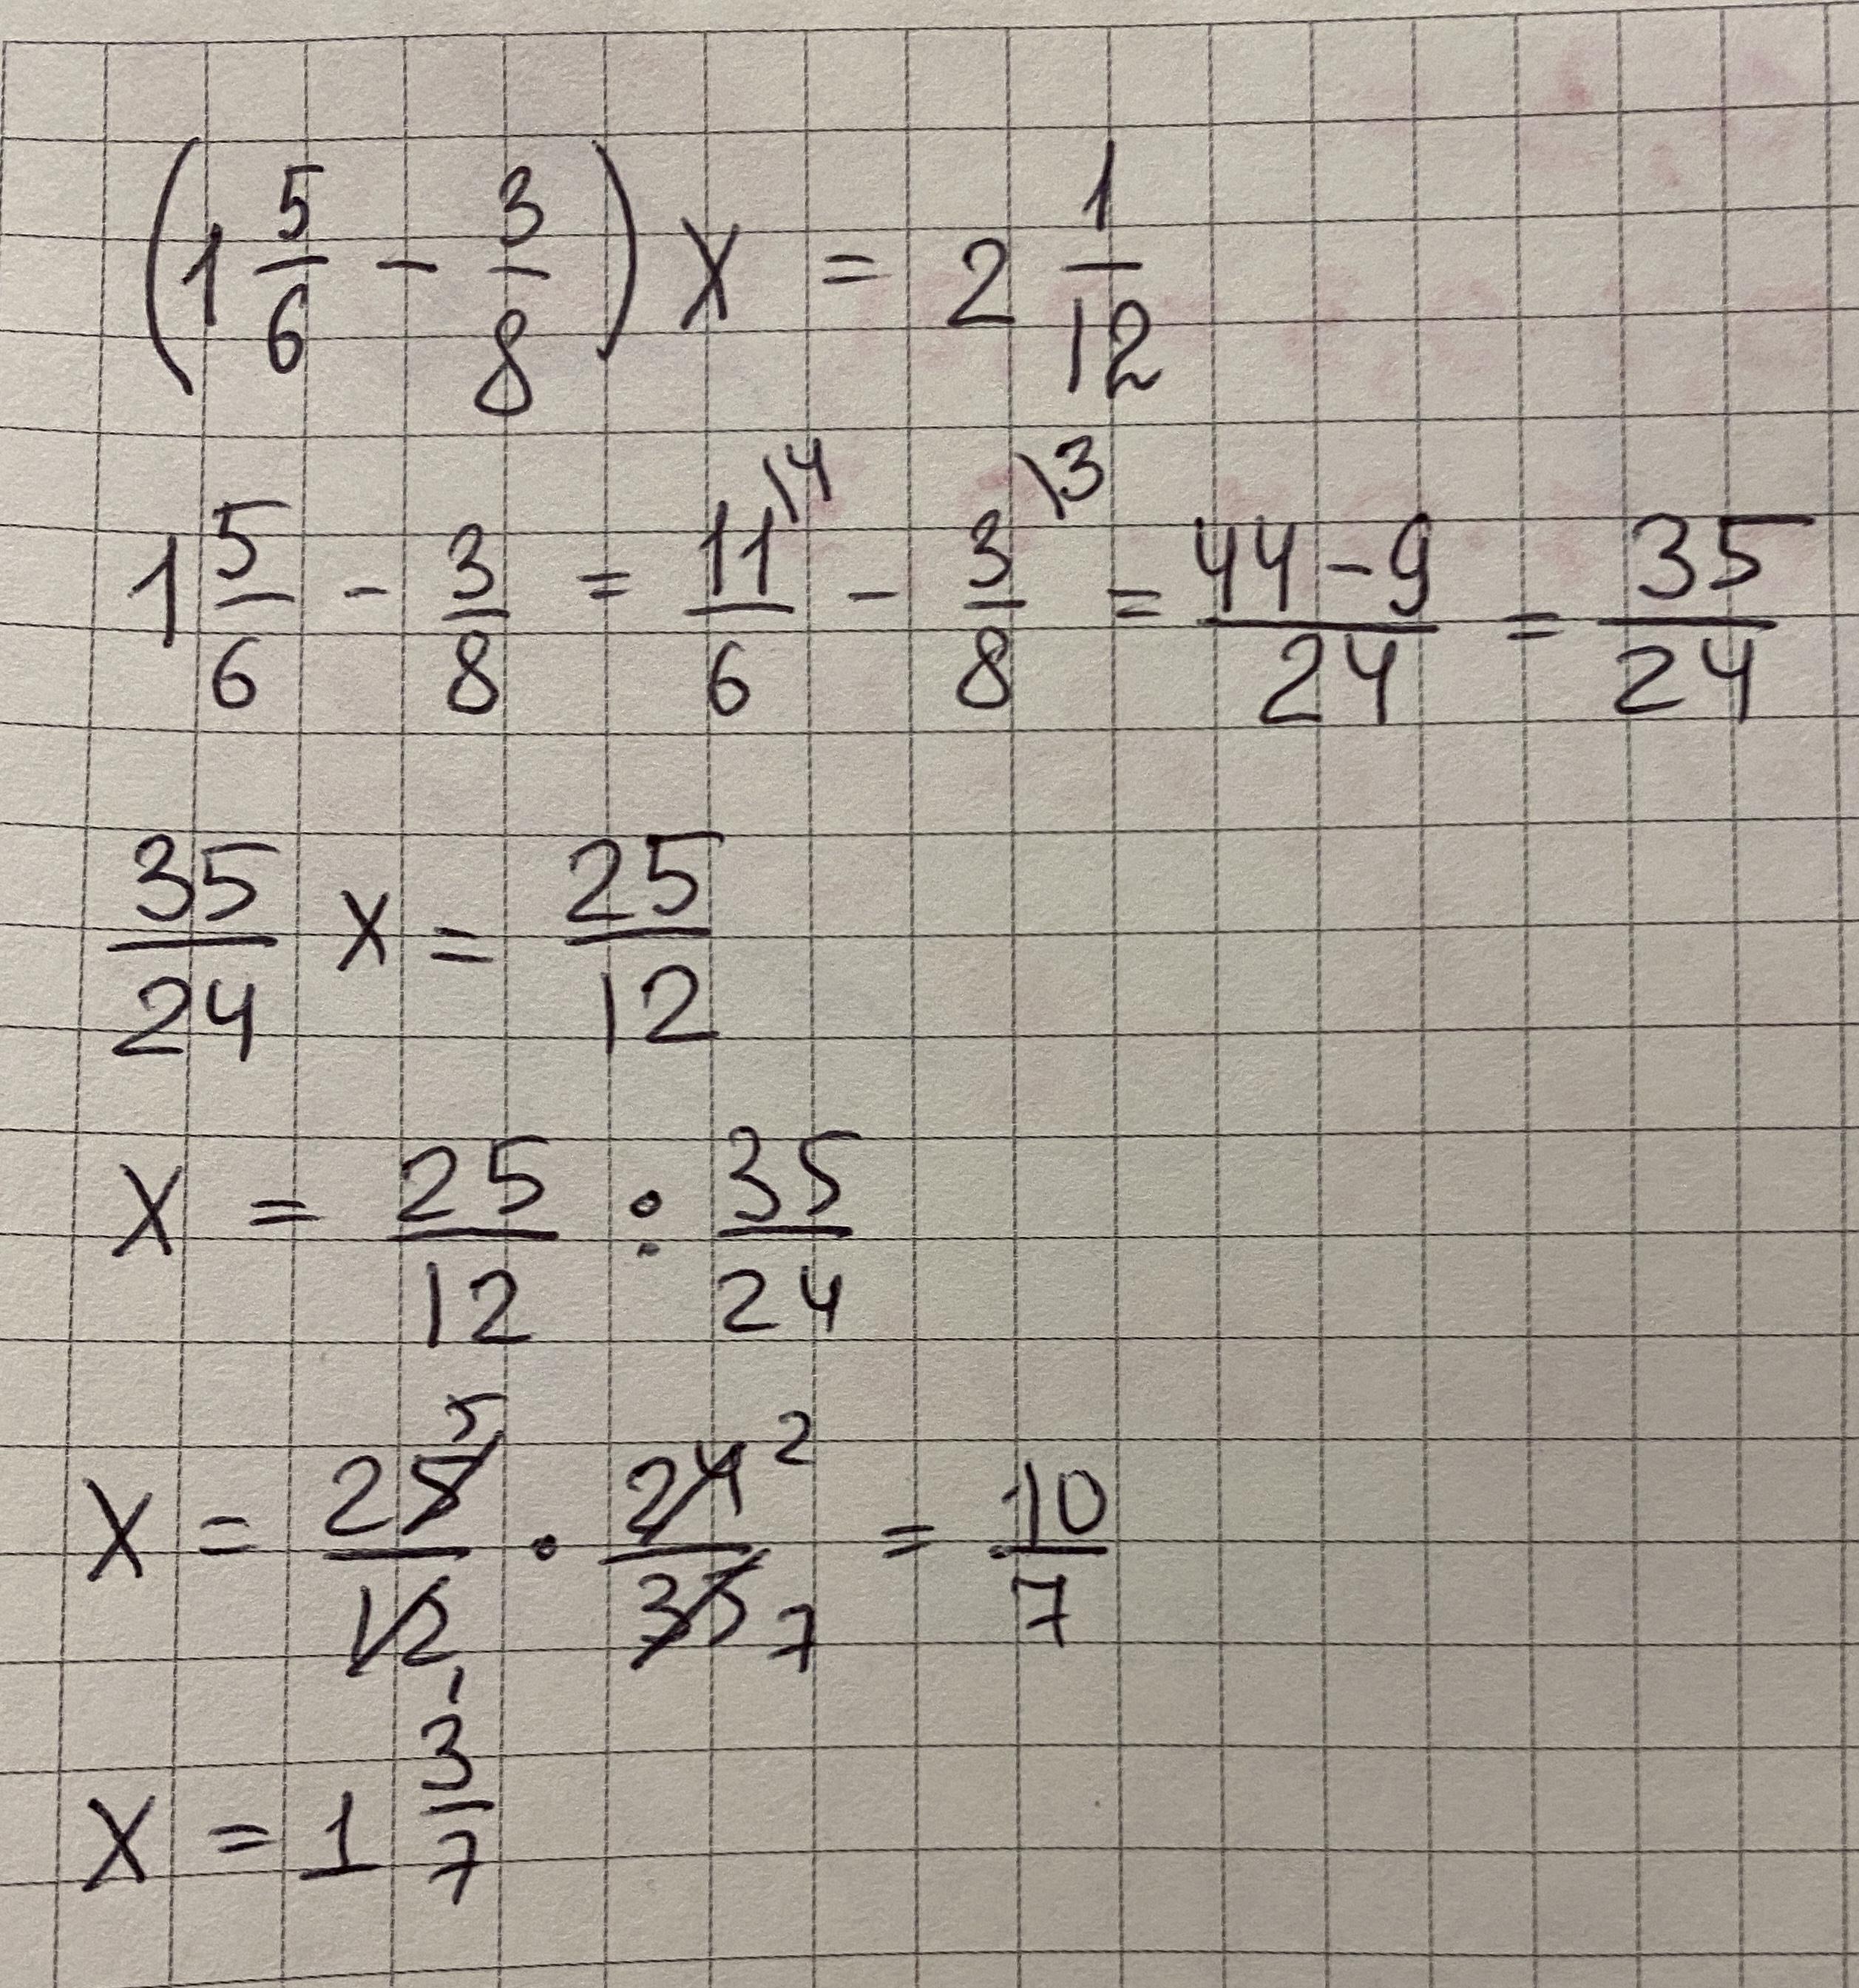 (1 5/6 - 3/8) x = 2 1/12
1 5/6 - 3/8 = 11/6 \4 - 3/8 \3 = 44-9/24 = 35/24
35/24 x = 25/12
x = 25/12 : 35/24
x = 25 5/12 1 · 24 2/35 7 = 10/7
x = 1 3/7